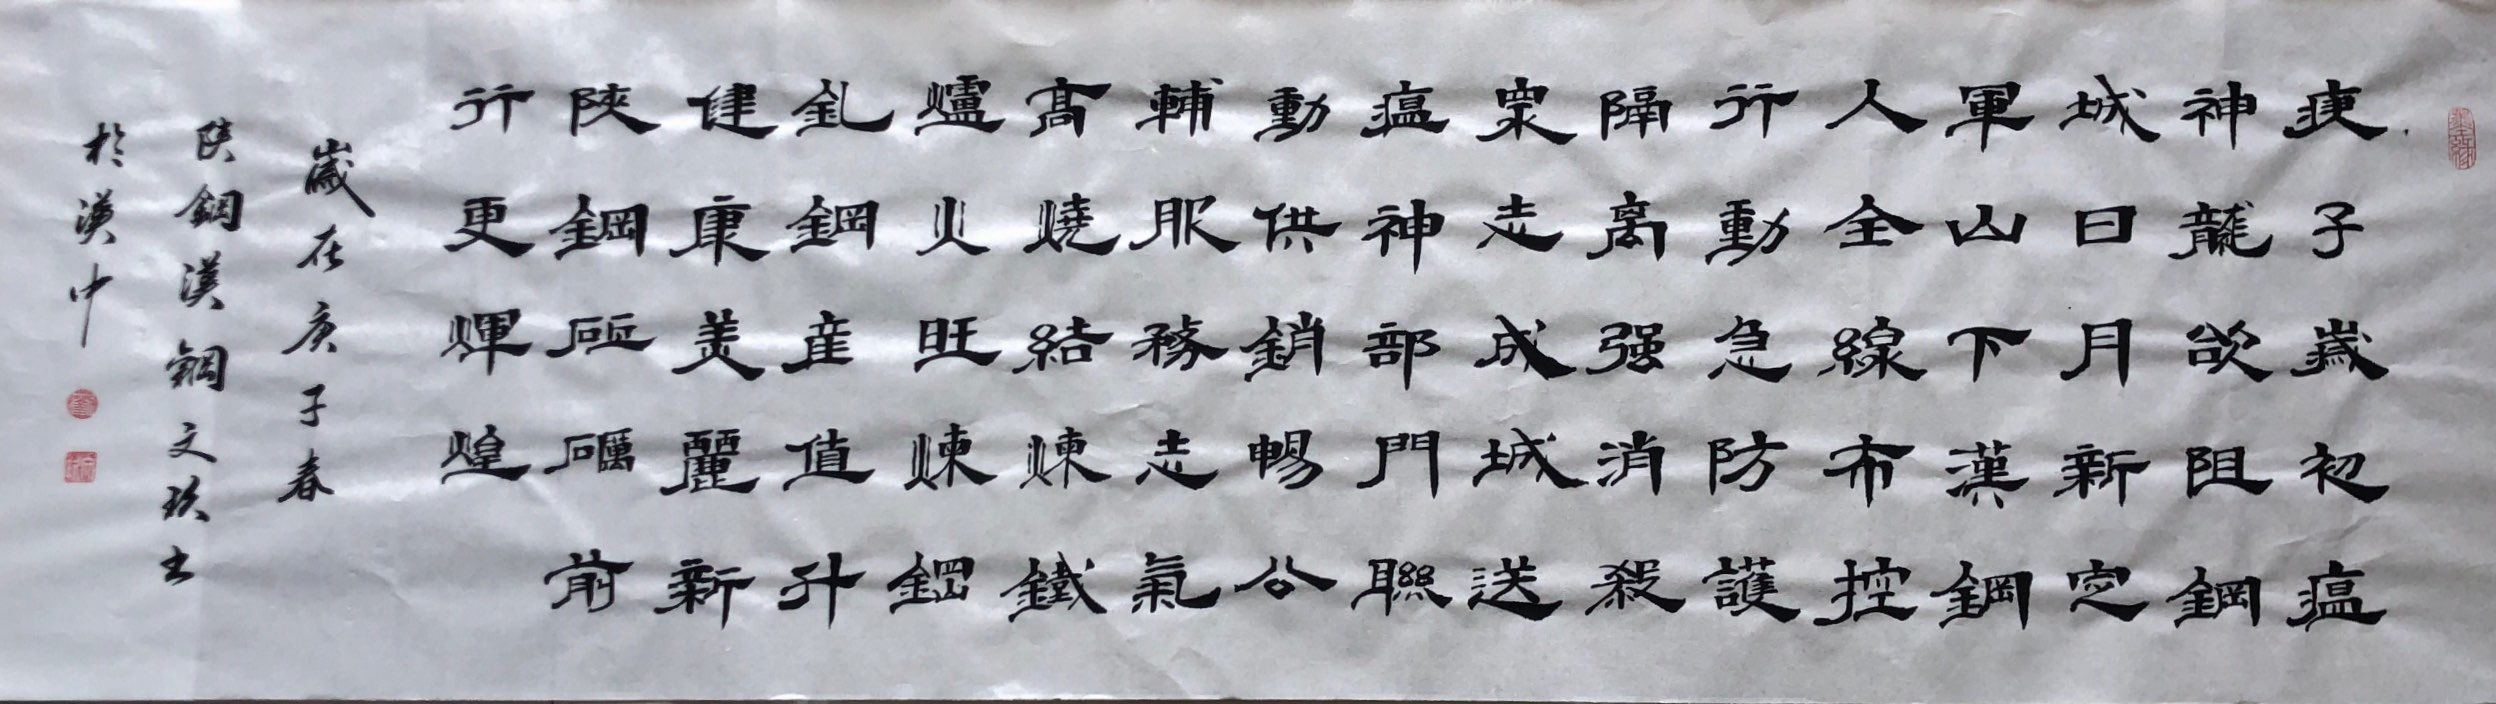 庚子歲初瘟
神龍欲阻鋼
城日月新定
軍山下漢鋼
人全線布控
行動急防護
隔离强消殺
衆志成城送
瘟神部門聯
動供銷暢公
輔服務志氣
高燒結煉鐵
爐火旺煉鋼
釓鋼産值升
健康美麗新
陝鋼砥礪前
行更輝煌
歲在庚子春
陝鋼漢鋼文玖书
於漢中